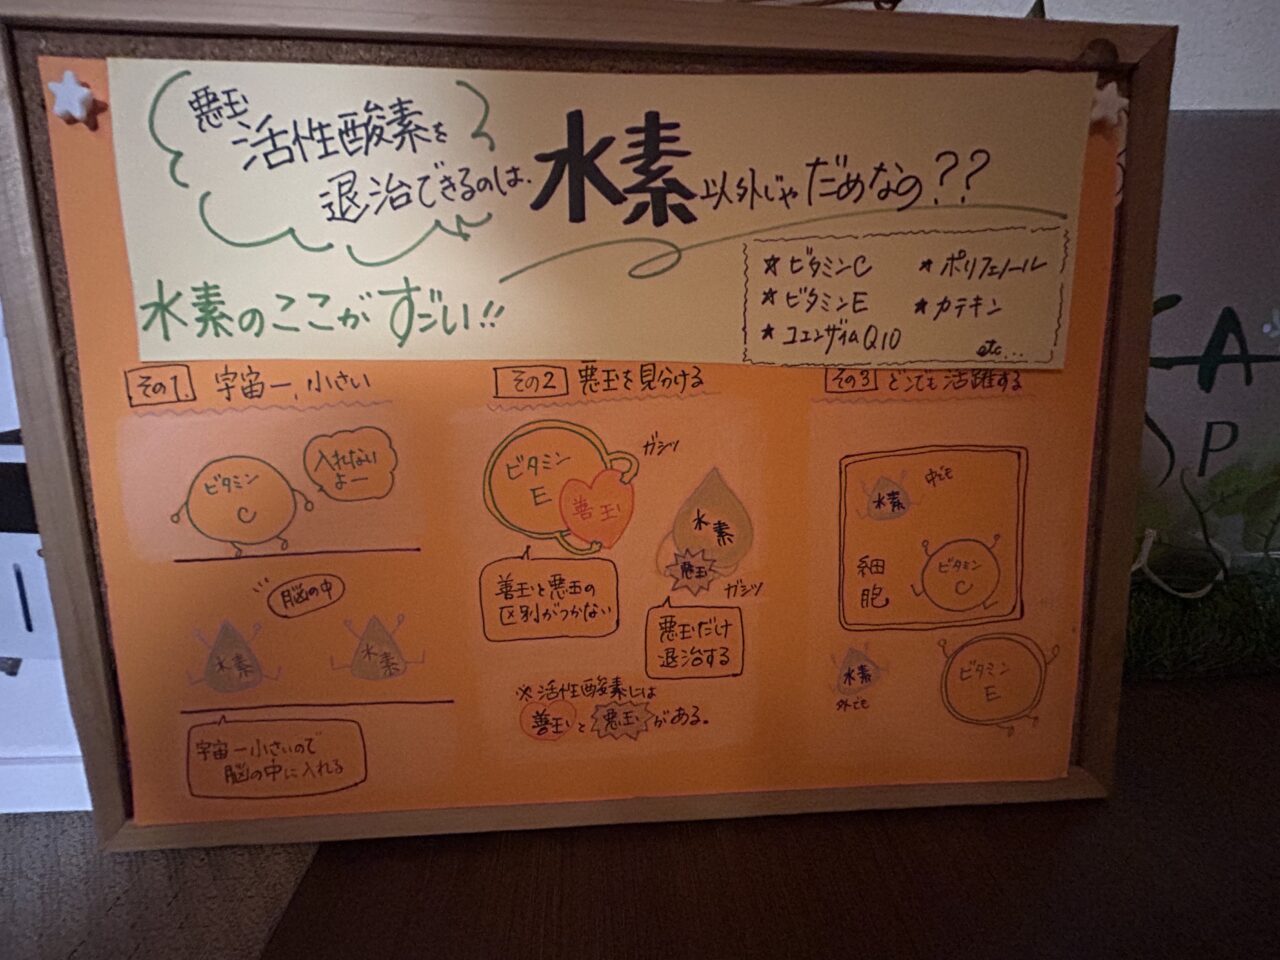 悪玉
活性酸素を
退治できるのは、水素以外じゃだめなの??
★ビタミンC ★ポリフェノール
★ビタミンE ★カテキン
★コエンザイムQ10
etc...
水素のここがすごい!!
その1. 宇宙一、小さい
ビタミン
C
入れない
よー
脳の中
水素
水素
宇宙一小さいので
脳の中に入れる
その2 悪玉を見分ける
ビタミン
E
善玉
ガシッ
水素
悪玉
ガシッ
善玉と悪玉の
区別がつかない
悪玉だけ
退治する
※活性酸素には
善玉と悪玉がある。
その3 どこでも活躍する
水素
中でも
細胞
ビタミン
C
水素
外でも
ビタミン
E
A
P